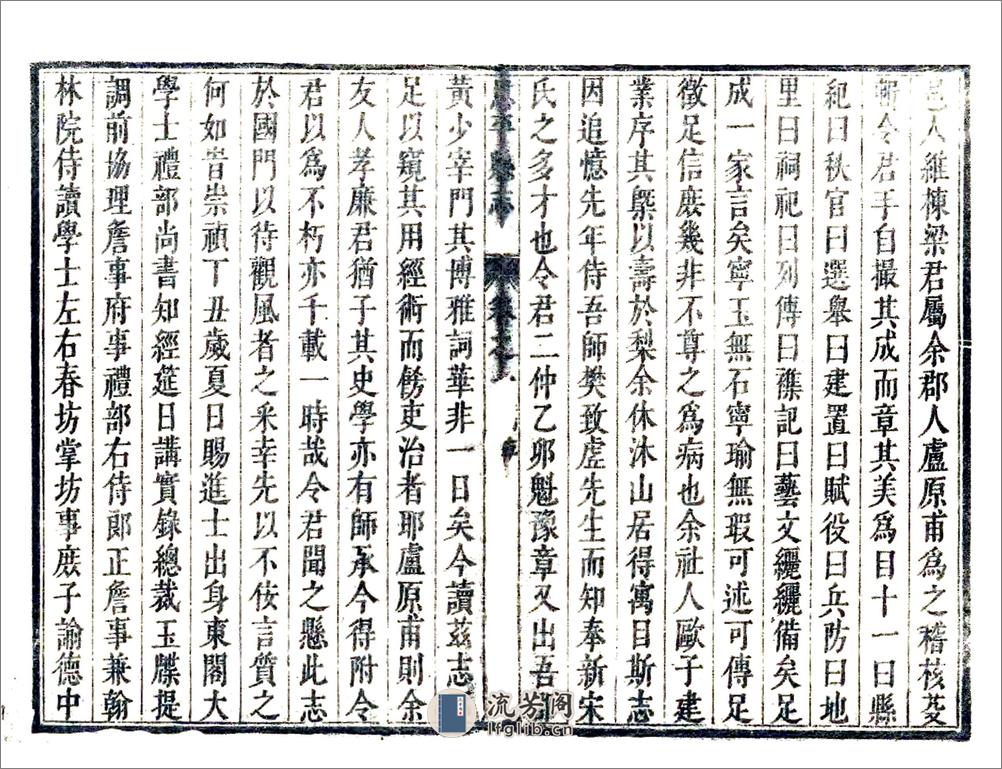 邑人維棟梁君屬余郡人盧原甫爲之稽核芟
令君手自撮其成而章其美爲目十一曰縣
紀曰秩官曰選舉曰建置曰賦役曰兵防曰地
里曰祠祀曰列傳曰雜記曰藝文纚纚備矣足
成一家言矣寧玉無石寧瑜無瑕可述可傳足
徵足信庶幾非不尊之爲病也余社人歐子建
業序其槩以壽於梨余休沐山居得寓目斯志
因追憶先年侍吾師樊致虛先生而知奉新宋
氏之多才也令君二仲乙卯魁豫章又出吾師
恩平縣志
黃少宰門其博雅詞華非一日矣今讀茲志
足以窺其用經術而餝吏治者耶盧原甫則余
友人孝廉君猶子其史學亦有師承今得附令
君以爲不朽亦千載一時哉令君聞之懸此志
於國門以待觀風者之采幸先以不佞言質之
何如旹崇禎丁丑歲夏日賜進士出身東閣大
學士禮部尚書知經筵日講實錄總裁玉牒提
調前協理詹事府事禮部右侍郎正詹事兼翰
林院侍讀學士左右春坊掌坊事庶子諭德中
流芳阁
lfglib.cn